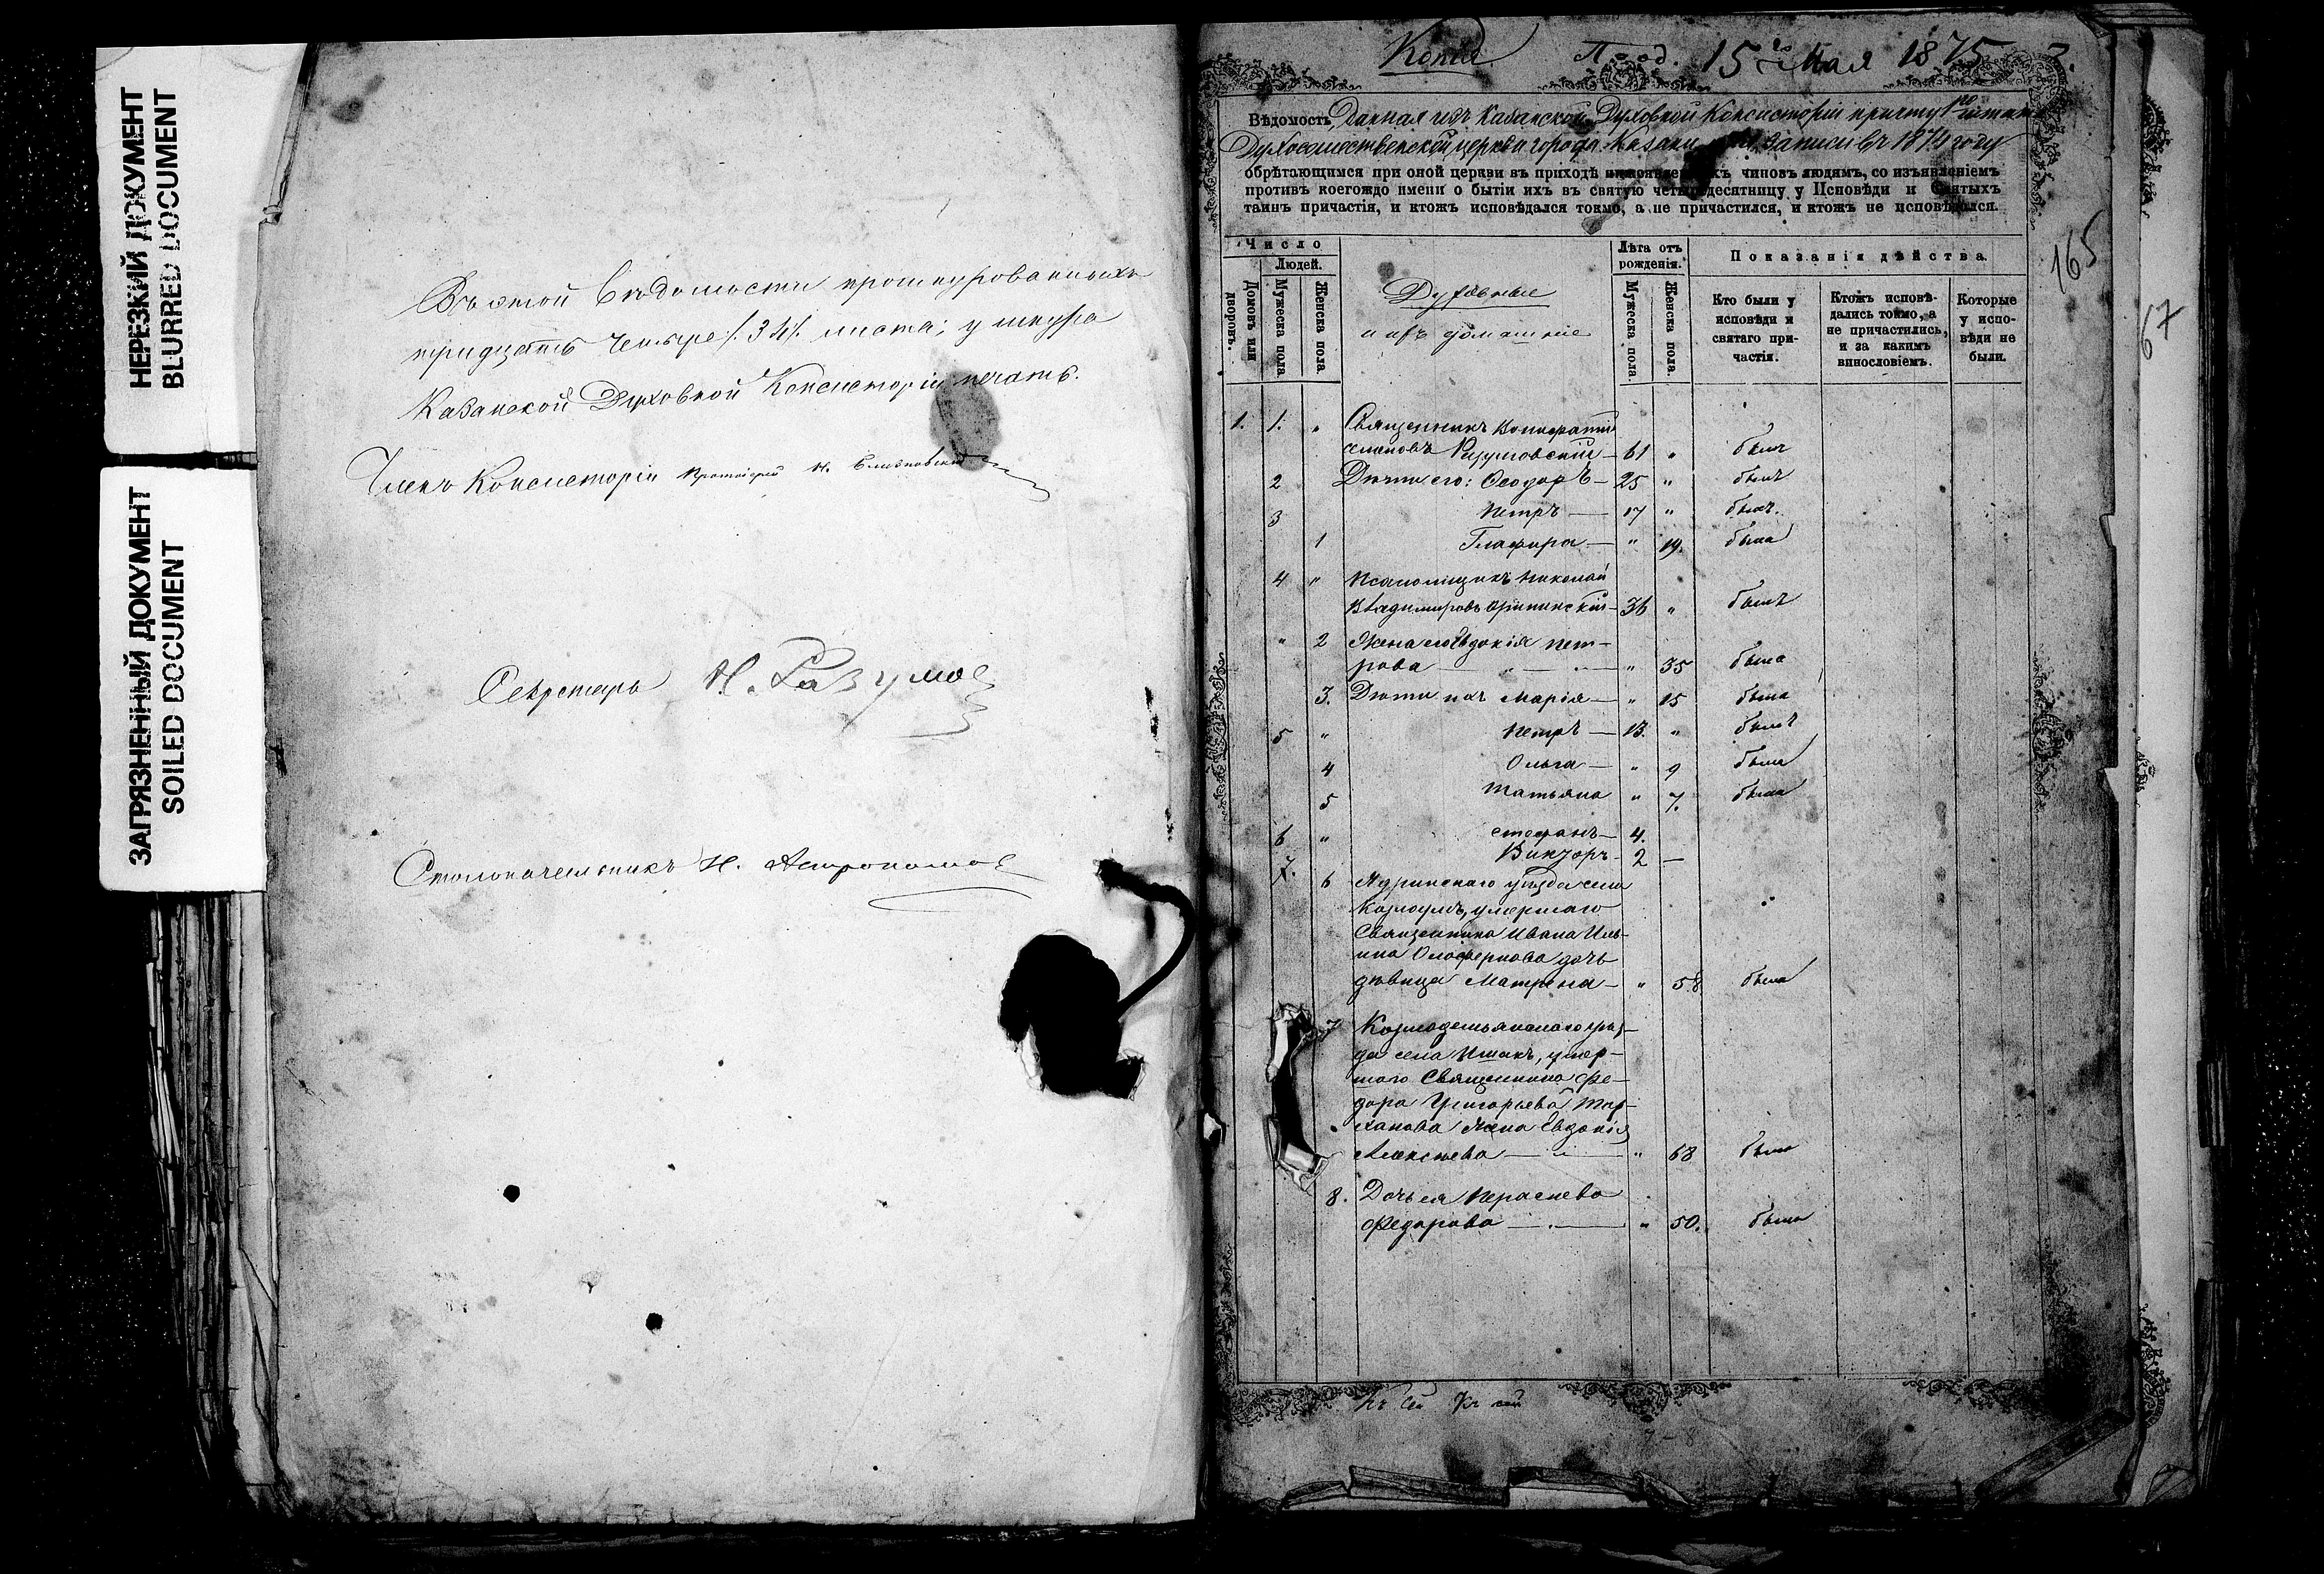 НЕРЕЗКИЙ ДОКУМЕНТ
BLURRED DOCUMENT
ЗАГРЯЗНЕННЫЙ ДОКУМЕНТ
SOILED DOCUMENT
Въ этой Ведомости прошнурованныхъ
тридцать четыре /.34/. листа; у шнура
Казанской Духовной Консисторіи печать.
Членъ Консисторіи Протоіерей
Секретарь Н. Разумов
Столоначальникъ Н. Астрономов
Копія
15го Мая 1875
2.
165
67
Вѣдомость, Данная изъ Казанской Духовной Консисторіи причту
Духосошественской церкви города Казани записи въ 1874 году
обрѣтающимся при оной церкви въ приходѣ чиновъ людямъ, со изъявленіемъ
противъ коегождо имени о бытіи ихъ въ святую четыредесятницу у Исповѣди и Святыхъ
таинъ причастія, и ктожъ исповѣдался токмо, а не причастился, и ктожъ не исповѣдался.
Число
Людей.
Домовъ или дворовъ.
Мужеска пола.
Женска пола.
Духовные
и ихъ домашніе
Лѣта отъ рожденія.
Мужеска пола.
Женска пола.
Показанія дѣйства.
Кто были у исповѣди и святаго причастія.
Ктожъ исповѣдались токмо, а не причастились, и за какимъ винословіемъ.
Которые у исповѣди не были.
1. 1. " Священникъ
61 " былъ
2 Дѣти его: Ѳеодоръ — 25 " былъ
3 Петръ — 17 " былъ.
1 Глафира — " 19. была
4 " Псаломщикъ Николай
Владимировъ 36 " былъ
" 2 Жена его Евдокія Пет-
рова — " — " 35 была
3. Дѣти ихъ Марія — " 15 была
5 " Петръ — 13. " былъ
4 Ольга — " 9 была
5 Татьяна " 7. была
6 " Стефанъ — 4.
7. Викторъ - 2 —
6 Ядринскаго уѣзда села
умершаго
Священника Ивана Иль-
ина Олоферновa дочь
дѣвица Матрена — " 58. была
7 Козмодемьянскаго уѣз-
да села Ишакъ, умер-
шаго Священника Фе-
дора Григорьева
жена Евдокія
Алексѣева — " 68 была
8. Дочь ея Параскева
Федорова — " 50. была
Къ сей Къ сей